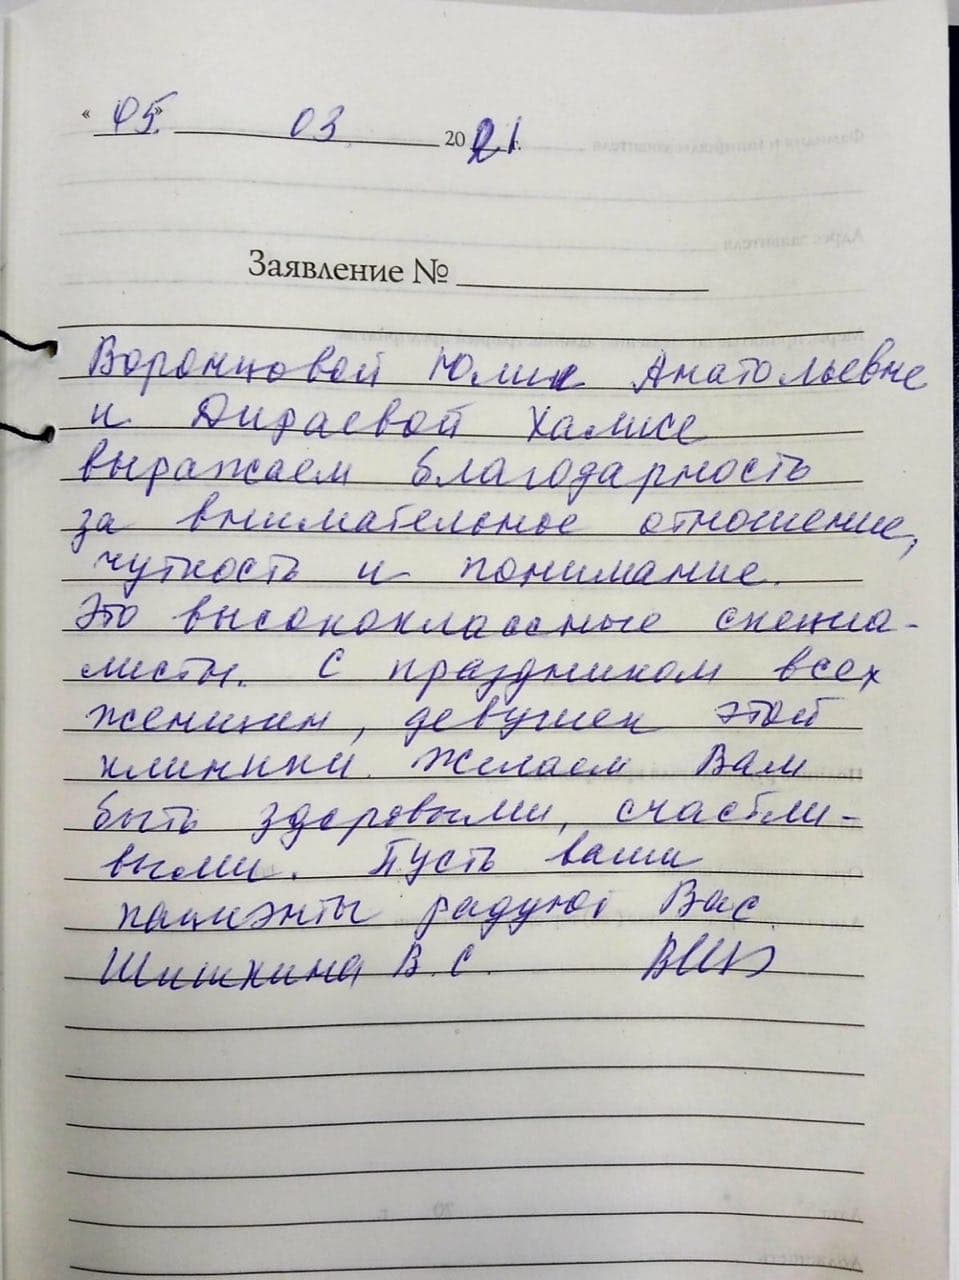 « 05 » 03 2021 г.
Заявление №
Воронцовой Юлии Анатольевне
и Дираевой Халисе
выражаем благодарность
за внимательное отношение,
чуткость и понимание.
Это высококлассные специа-
листы. С праздником всех
женщин, девушек этой
клиники. Желаем Вам
быть здоровыми, счастли-
выми. Пусть ваши
пациэнты радуют Вас.
Шишкина В. С.